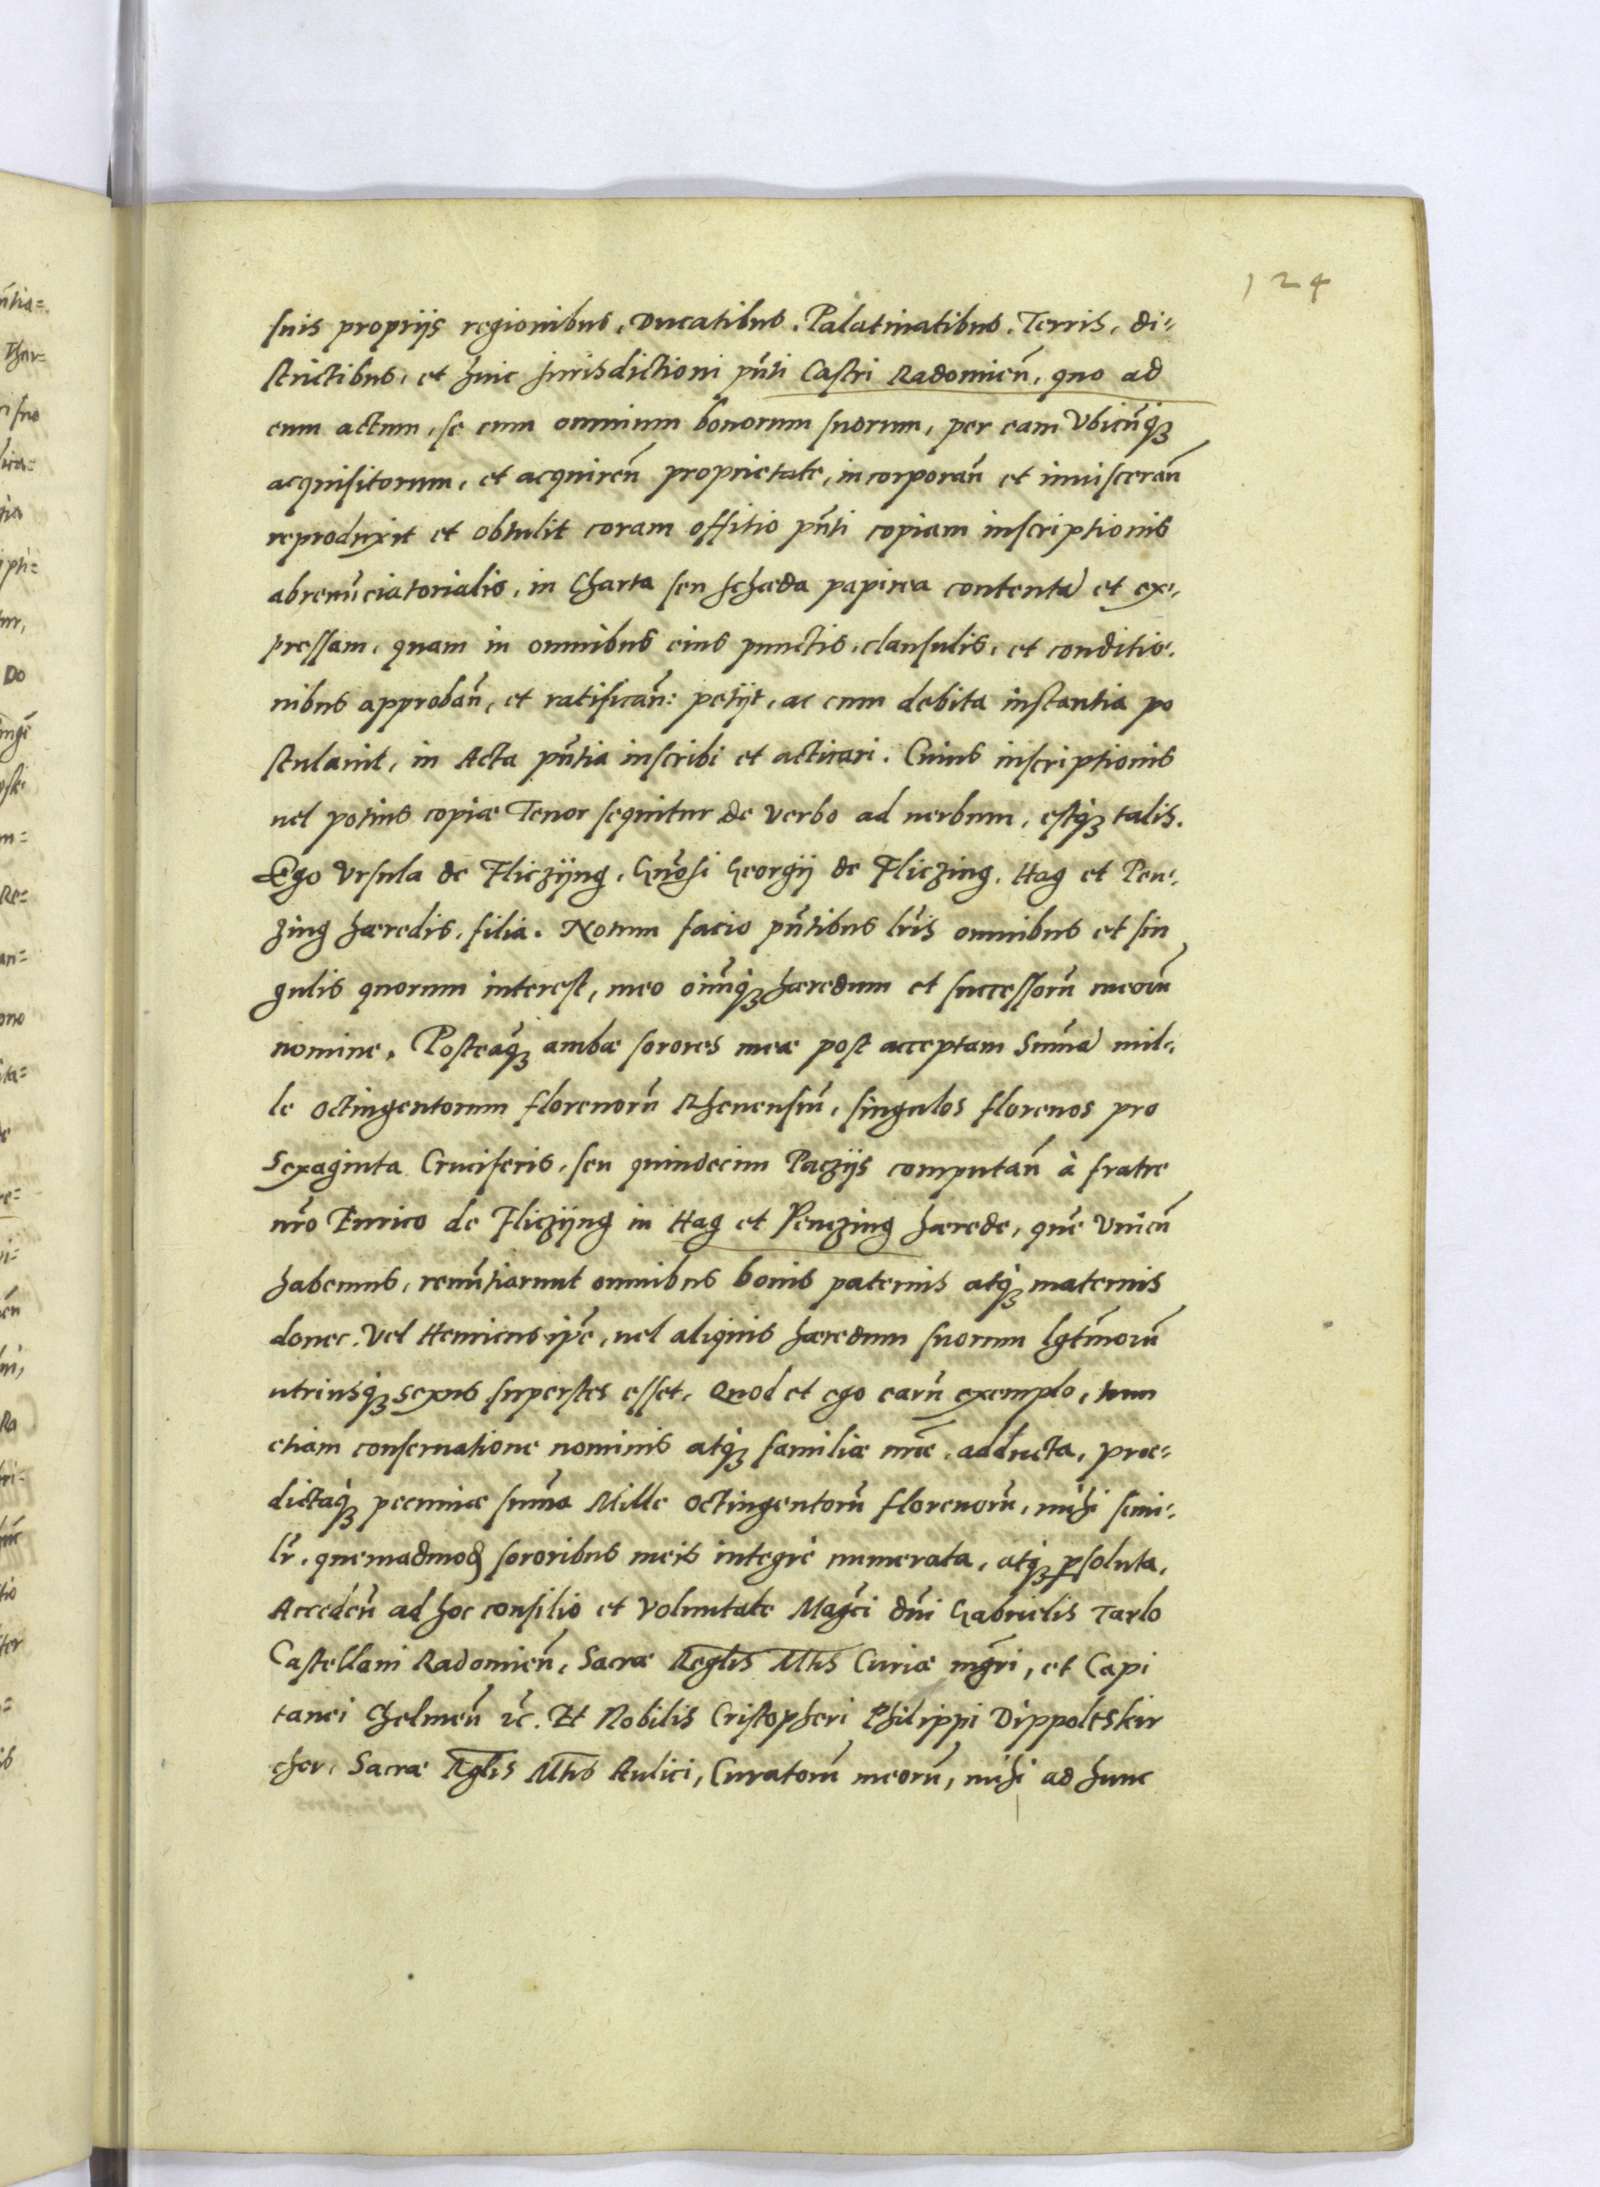 124
suis proprijs regionibus, Ducatibus, Palatinatibus, Terris, di-
strictibus, et huic Jurisdictioni pn̄ti Castri Radomien̄, quo ad
eum actum, se cum omnium bonorum suorum, per eam Vbicūq3
acquisitorum, et acquiren̄ proprietate, incorporan̄ et inuisceran̄
reproduxit et obtulit coram offitio pn̄ti copiam inscriptionis
abrenūciatorialis, in Charta seu schæda papirea contentā et ex-
pressam, quam in omnibus eius punctis, clausulis, et conditio-
nibus approban̄, et ratifican̄: petijt, ac cum debita instantia po
stulauit, in Acta pn̄tia inscribi et acticari. Cuius inscriptionis
uel potius copiæ Tenor sequitur de Verbo ad uerbum, estq3 talis.
Ego Vrsula de Fliczijng, Gn̄osi Georgij de Fliczing, Hag et Pen-
zing hæredis, filia. Notum facio pn̄tibus lr̄is omnibus et sin
gulis quorum interest, meo oīūq3 hæredum et successorū meorū
nomine, Posteaq̄3 ambæ sorores meæ post acceptam Sum̄ā mil-
le octingentorum florenorū Rhenensiū, singulos florenos pro
Sexaginta Cruciferis, seu quindecim Paczijs computan̄ à fratre
nr̄o Enrico de Fliczijng in Hag et Penczing hærede, quē Vnicū
habemus, renūtiarunt omnibus bonis paternis atq3 maternis
donec. Vel Henricus ip̄e, uel aliquis hæredum suorum lgt̄imorū
utriusq3 sexus superstes esset, Quod et ego earū exemplo, tum
etiam conseruatione nominis atq3 familiæ nr̄æ, adducta, præ-
dictaq3 pecuniæ sum̄a Mille octingentorū florenorū, mihi simi-
lr̄, quemadmod sororibus meis integrè numerata, atq3 psoluta,
Acceden̄ ad hoc consilio et Voluntate Magc̄i dn̄i Gabrielis Tarlo
Castellani Radomien̄, Sacræ Regl̄is Mt̄is Curiæ mgr̄i, et Capi
tanei Chelmen̄ rc̄. Et Nobilis Cristopheri Philippi Dippoltskir
cher, Sacræ Rgl̄is Mt̄is Aulici, Curatorū meorū, mihi ad hunc